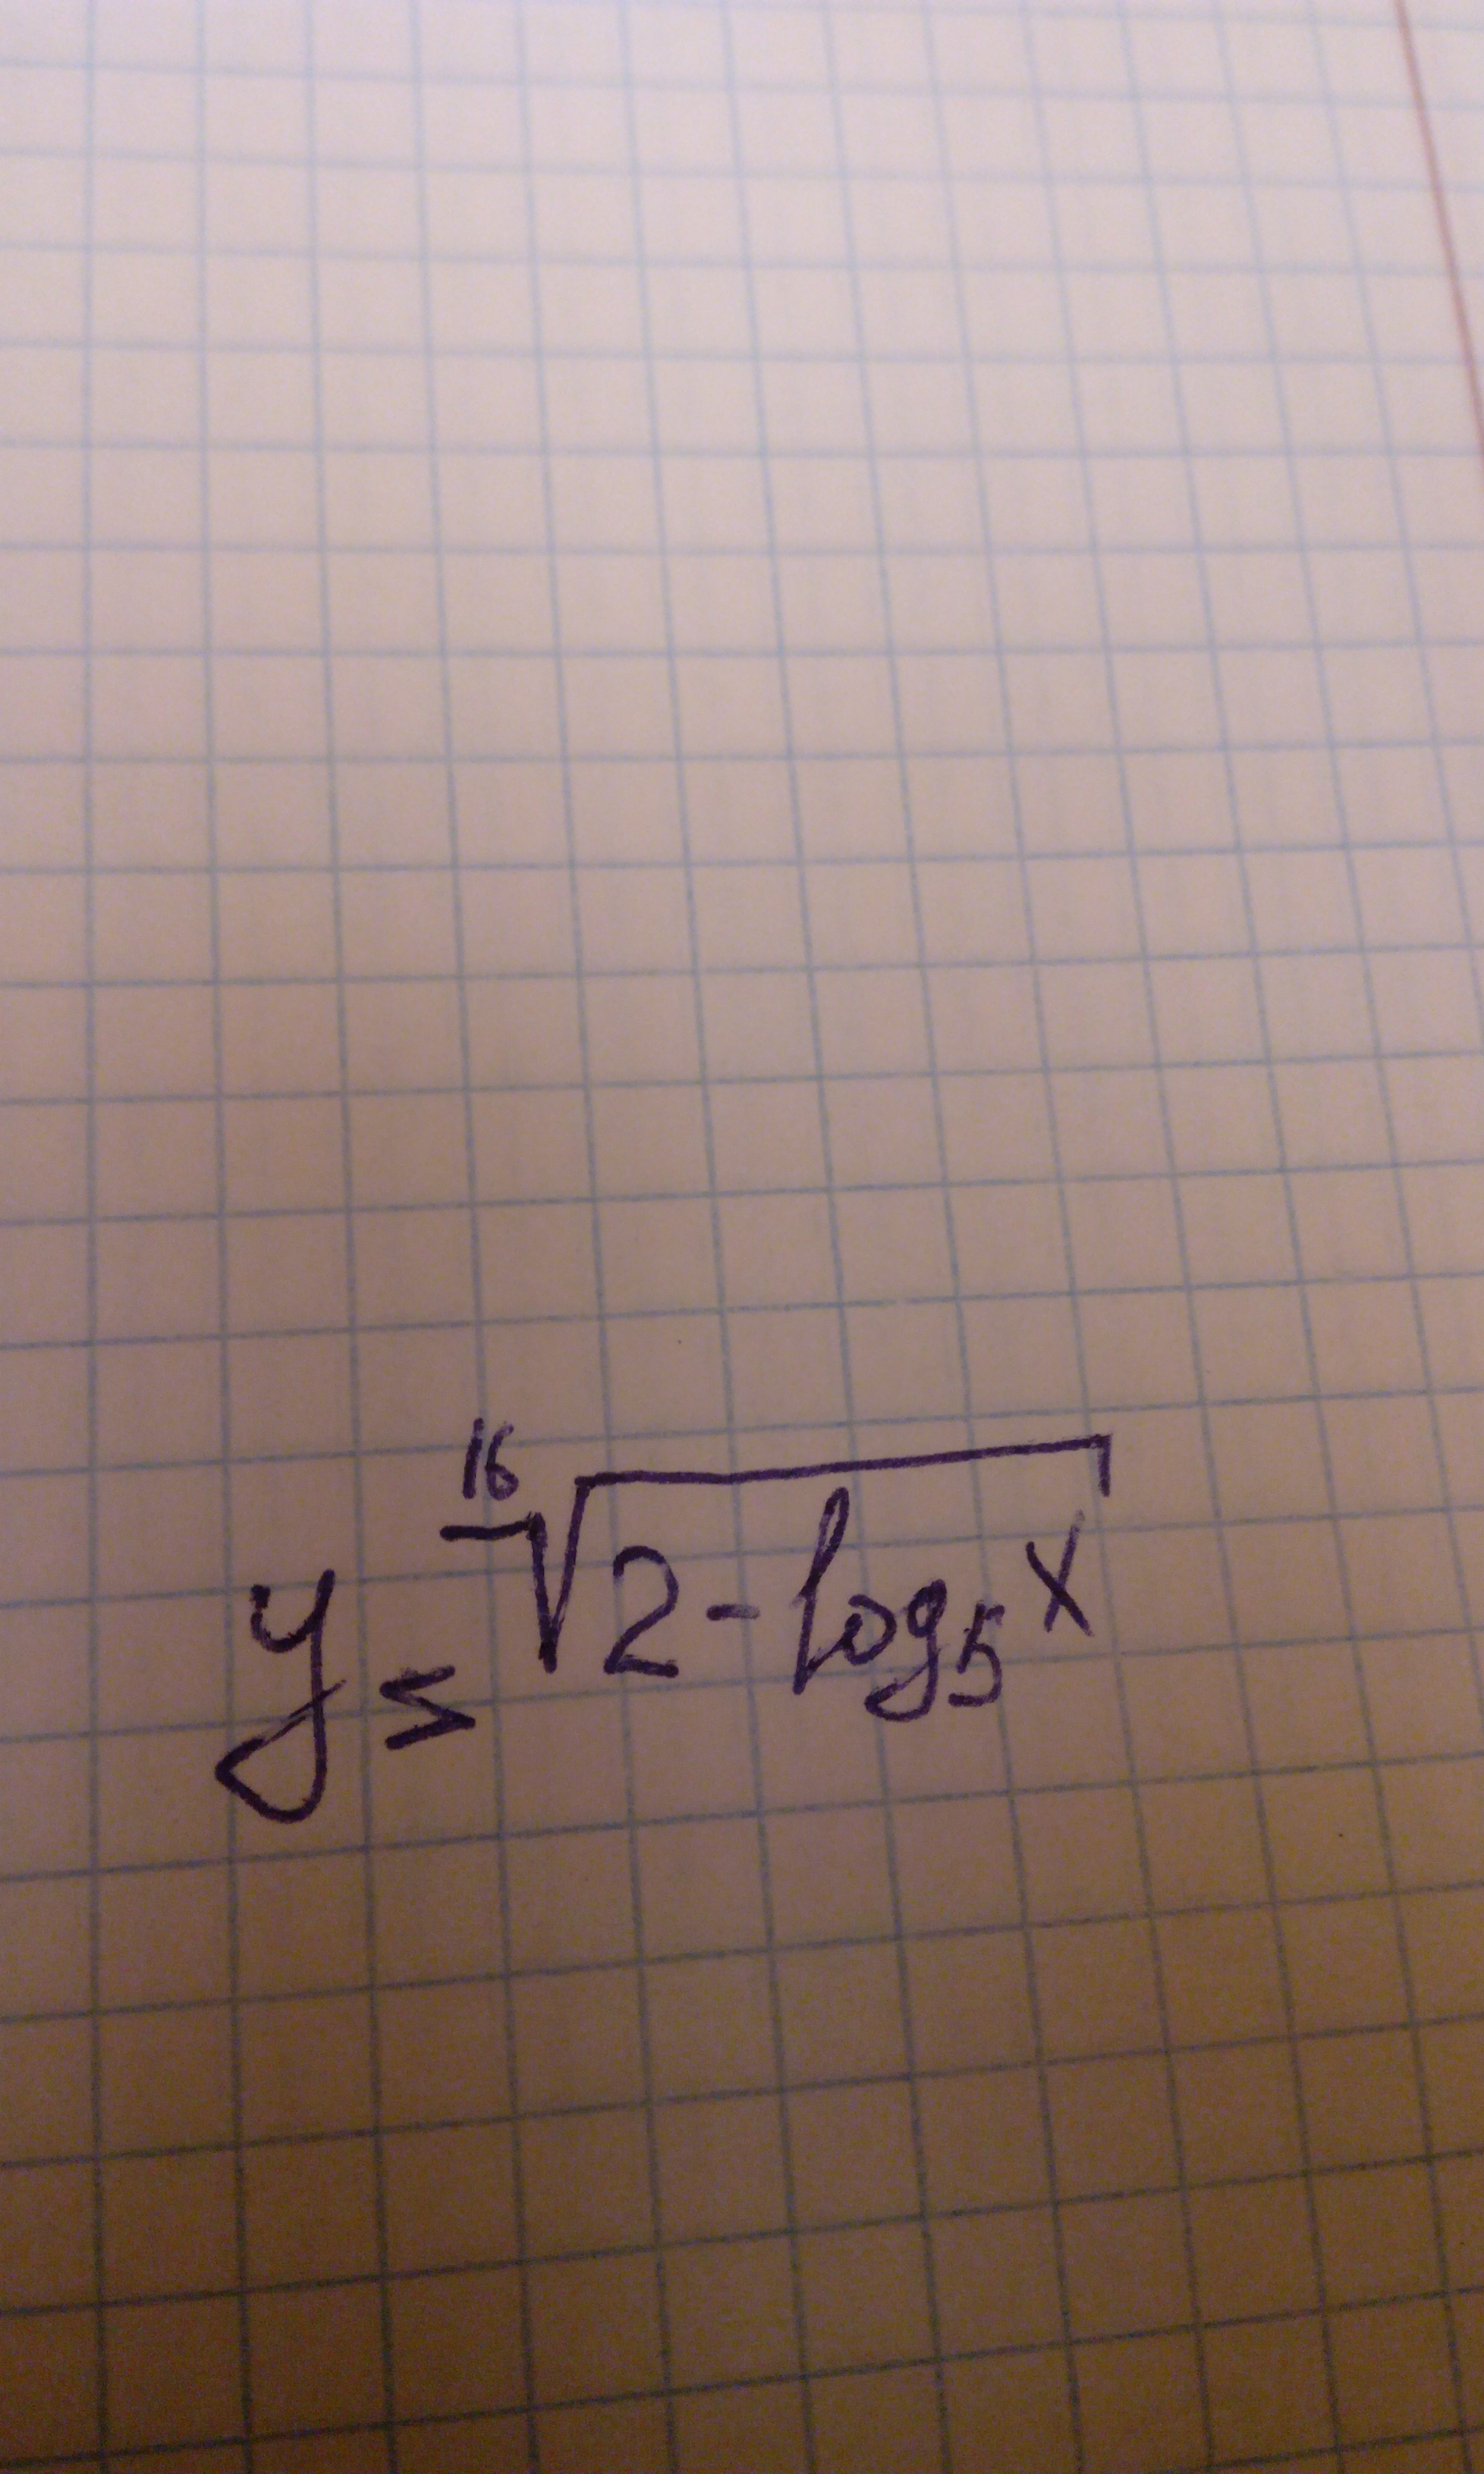 y = \sqrt[16]{2 - log₅ x}